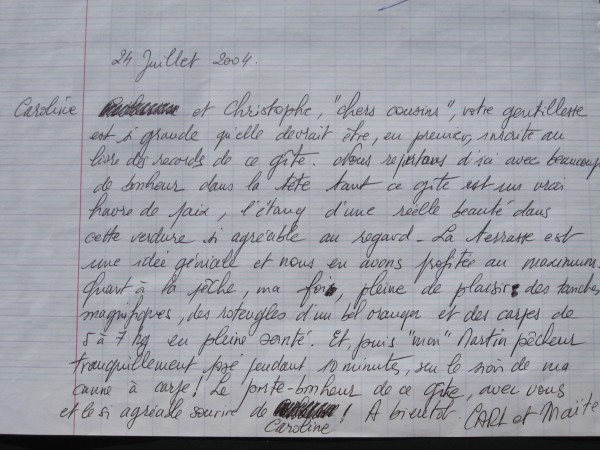 24 Juillet 2004.
Caroline et Christophe, "chers cousins", votre gentillesse
est si grande qu'elle devrait être, en premier, inscrite au
livre des records de ce gîte. Nous repartons d'ici avec beaucoup
de bonheur dans la tête tant ce gîte est un vrai
havre de paix, l'étang d'une réelle beauté dans
cette verdure si agréable au regard - La terrasse est
une idée géniale et nous en avons profitée au maximum.
Quant à la pêche, ma foi, pleine de plaisir: des tanches
magnifiques, des rotengles d'un bel oranger et des carpes de
5 à 7 kg en pleine santé. Et, puis "mon" Martin pêcheur
tranquillement posé pendant 10 minutes, sur le scion de ma
canne à carpe! Le porte-bonheur de ce gîte, avec vous
et le si agréable sourire de ! A bientôt. CARL et Maïté
Caroline